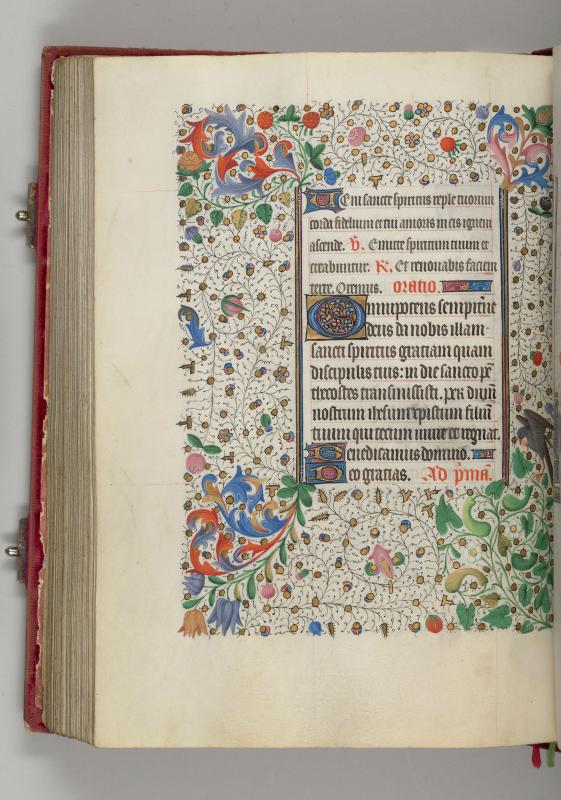 Veni sancte spiritus reple tuorum
corda fidelium et tui amoris in eis ignem
ascende. V. Emitte spiritum tuum et
creabuntur. R. Et renovabis faciem
terre. Oremus. oratio.
Omnipotens sempiterne
deus da nobis illam
sancti spiritus gratiam quam
discipulis tuis: in die sancto pe
thecostes transmisisti. per dnm
nostrum ihesum xpistum filium
tuum qui tecum vivit et regnat.
Benedicamus domino.
Deo gratias. Ad prima.